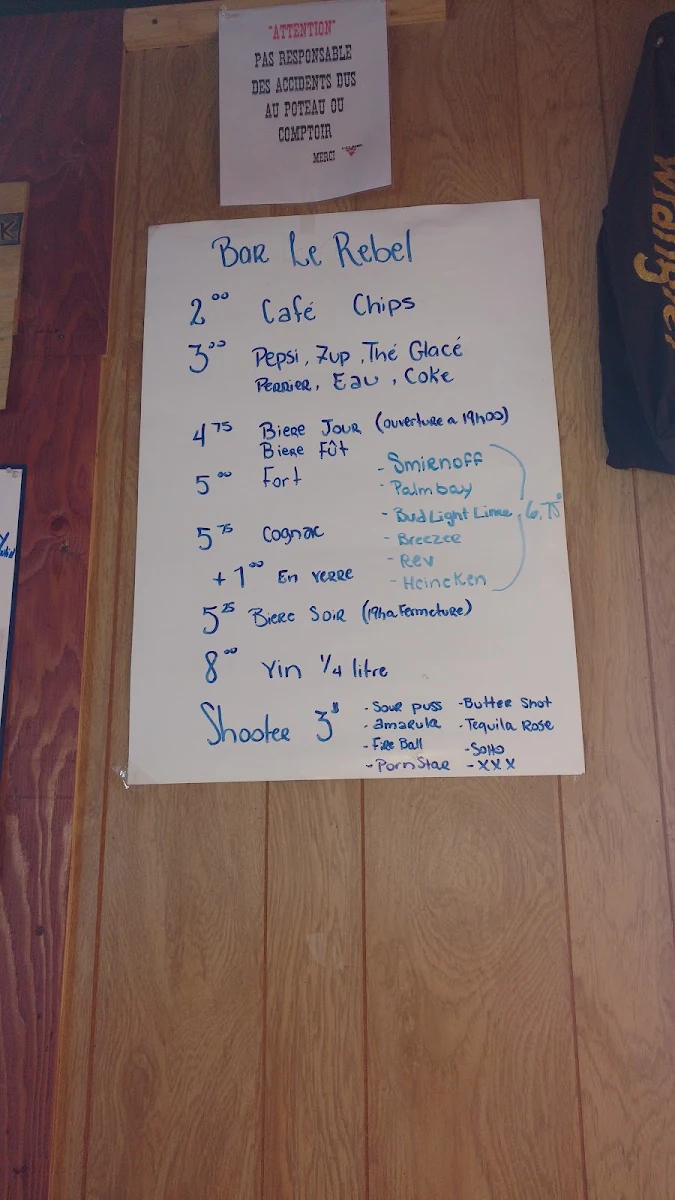 "ATTENTION"
PAS RESPONSABLE
DES ACCIDENTS DUS
AU POTEAU OU
COMPTOIR
MERCI
Wrangler
Bar Le Rebel
2°° Café Chips
3°° Pepsi, 7up, Thé Glacé
Perrier, Eau, Coke
4 75 Biere Jour (ouverture a 19h00)
Biere Fût
5°° Fort
- Smirnoff
- Palmbay
- Bud Light Lime 6,75$
- Breezee
- Rev
- Heineken
5 75 Cognac
+1°° En verre
5 25 Biere Soir (19h a Fermeture)
8°° Vin 1/4 litre
Shooter 3$
- Sour puss - Butter Shot
- amarula - Tequila Rose
- Fire Ball - SoHo
- Porn Star - XXX